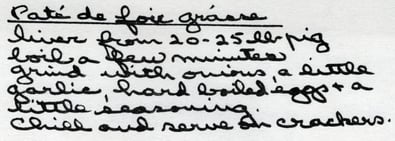 Paté de foie grásse
liver from 20-25-lb pig
boil a few minutes
grind with onions, a little
garlic, hard boiled eggs + a
little seasoning.
Chill and serve on crackers.